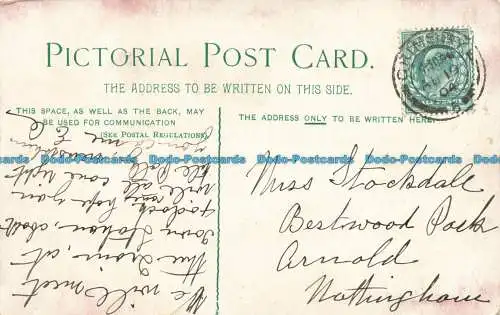 PICTORIAL POST CARD.
THE ADDRESS TO BE WRITTEN ON THIS SIDE.
THIS SPACE, AS WELL AS THE BACK, MAY
BE USED FOR COMMUNICATION
(SEE POSTAL REGULATIONS).
THE ADDRESS ONLY TO BE WRITTEN HERE.
GRIMSBY
04
Dodo-Postcards Dodo-Postcards Dodo-Postcards Dodo-Postcards Dodo-Postcards
Miss Stockdale
Bestwood Park
Arnold
Nottingham
We will meet
the Tram, at
Town Station about
hope you
will all come